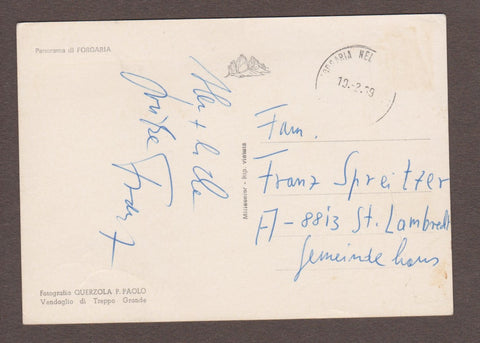 Panorama di FORGARIA
FORGARIA NEL
10.-2.
Grüße Franz
Milleaerior - Rip. vietata
Fam.
Franz Spreitzer
A-8813 St. Lambrecht
Gemeindehaus
Fotografia GUERZOLA P. PAOLO
Vendoglio di Treppo Grande